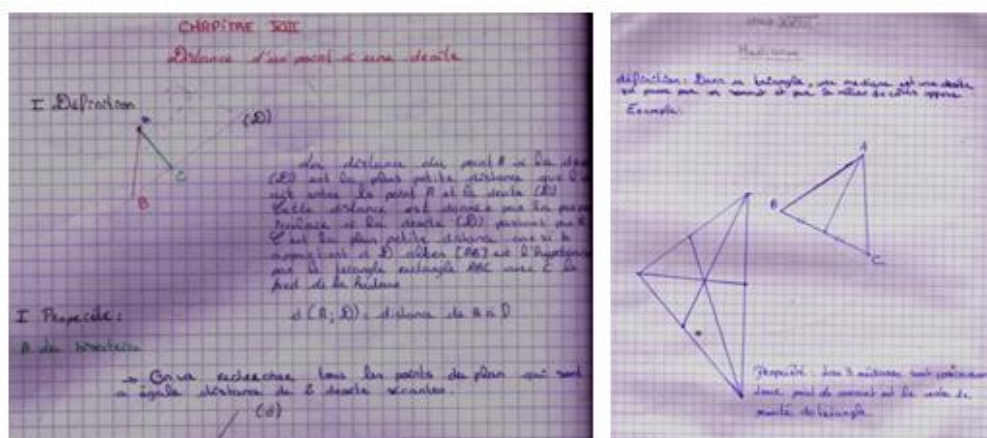 CHAPITRE XVII
Distance d'un point à une droite
I Définition
A
(D)
C
B
La distance du point A à la
(D) est la plus petite distance que
entre le point A et la droite (D)
Cette distance est donnée par la
à la droite (D) passant par
C'est la plus petite distance car si
appartient à D alors [AB] est
le triangle rectangle ABC avec C le
pied de la hauteur
d(A; D) : distance de A à D
I Propriété :
A la bissectrice
→ On va rechercher tous les points du plan qui sont
à égale distance de 2 droites sécantes.
(d)
Médianes
définition : Dans un triangle, une médiane est une droite
qui passe par un sommet et par le milieu du côté opposé
Exemple
A
B
C
Propriété : Les 3 médianes sont
point de concours est le centre de
gravité du triangle